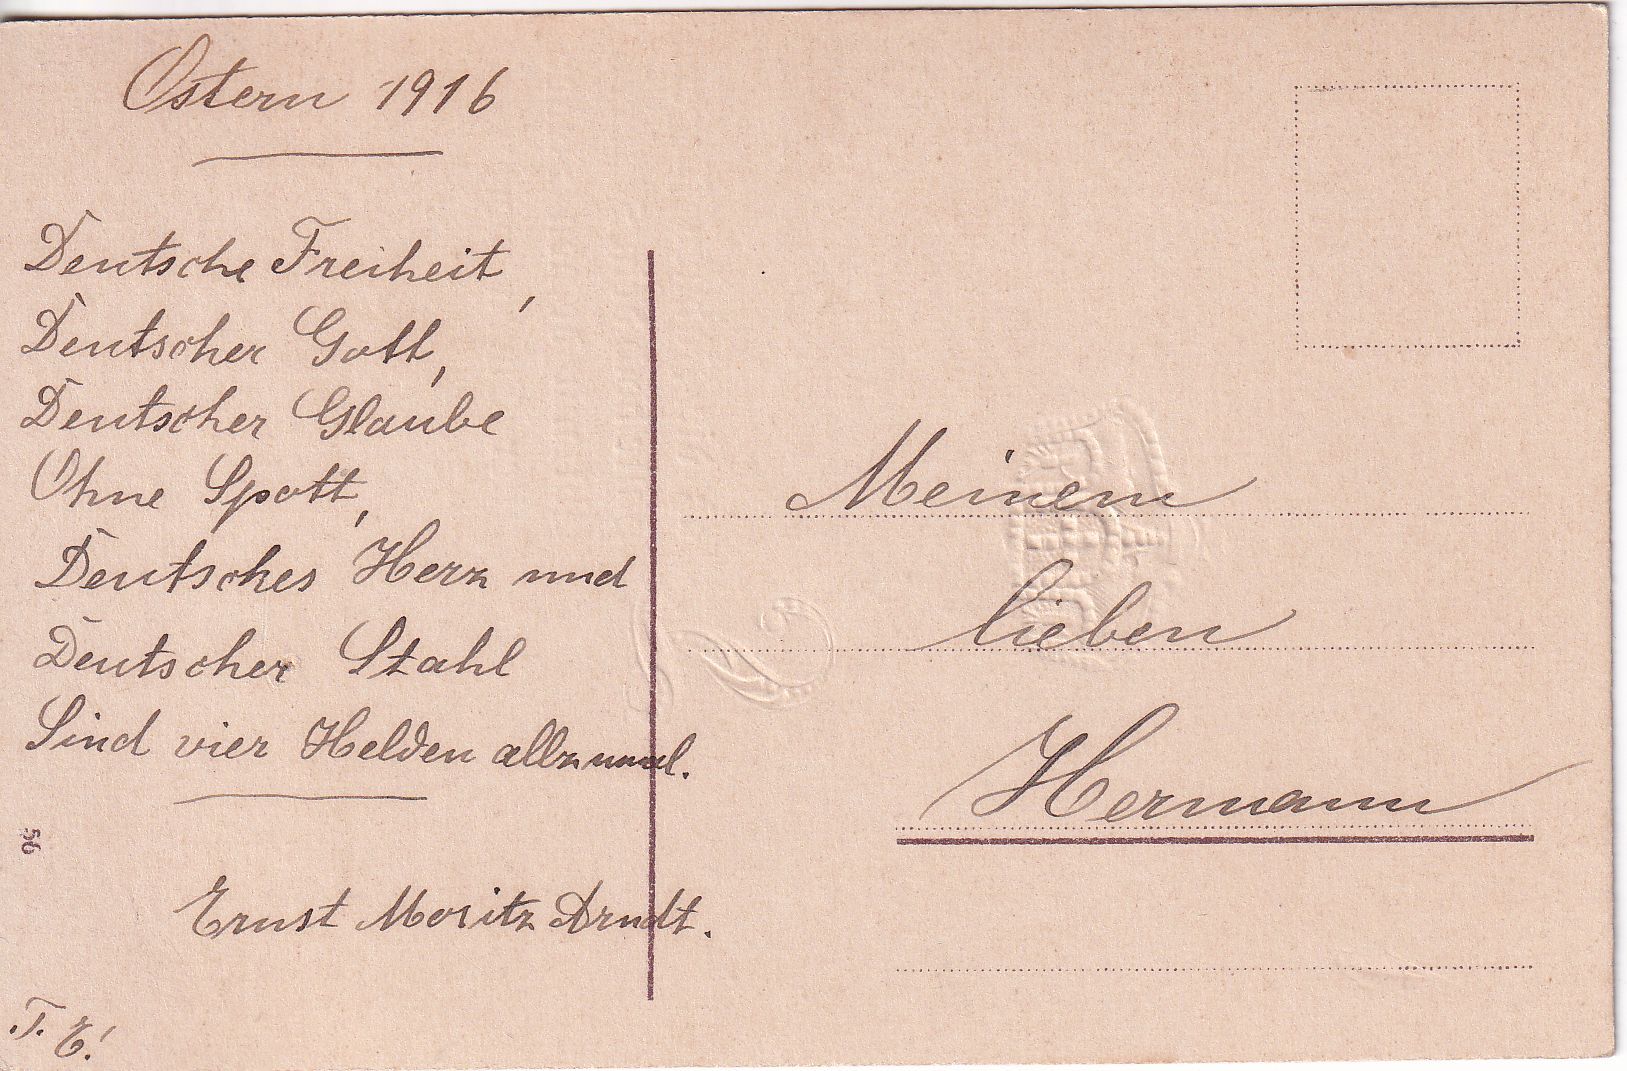 Ostern 1916
Deutsche Freiheit,
Deutscher Gott,
Deutscher Glaube
Ohne Spott,
Deutsches Herz und
Deutscher Stahl
Sind vier Helden allzumal.
Ernst Moritz Arndt.
T. E!
56
Meinem
lieben
Hermann